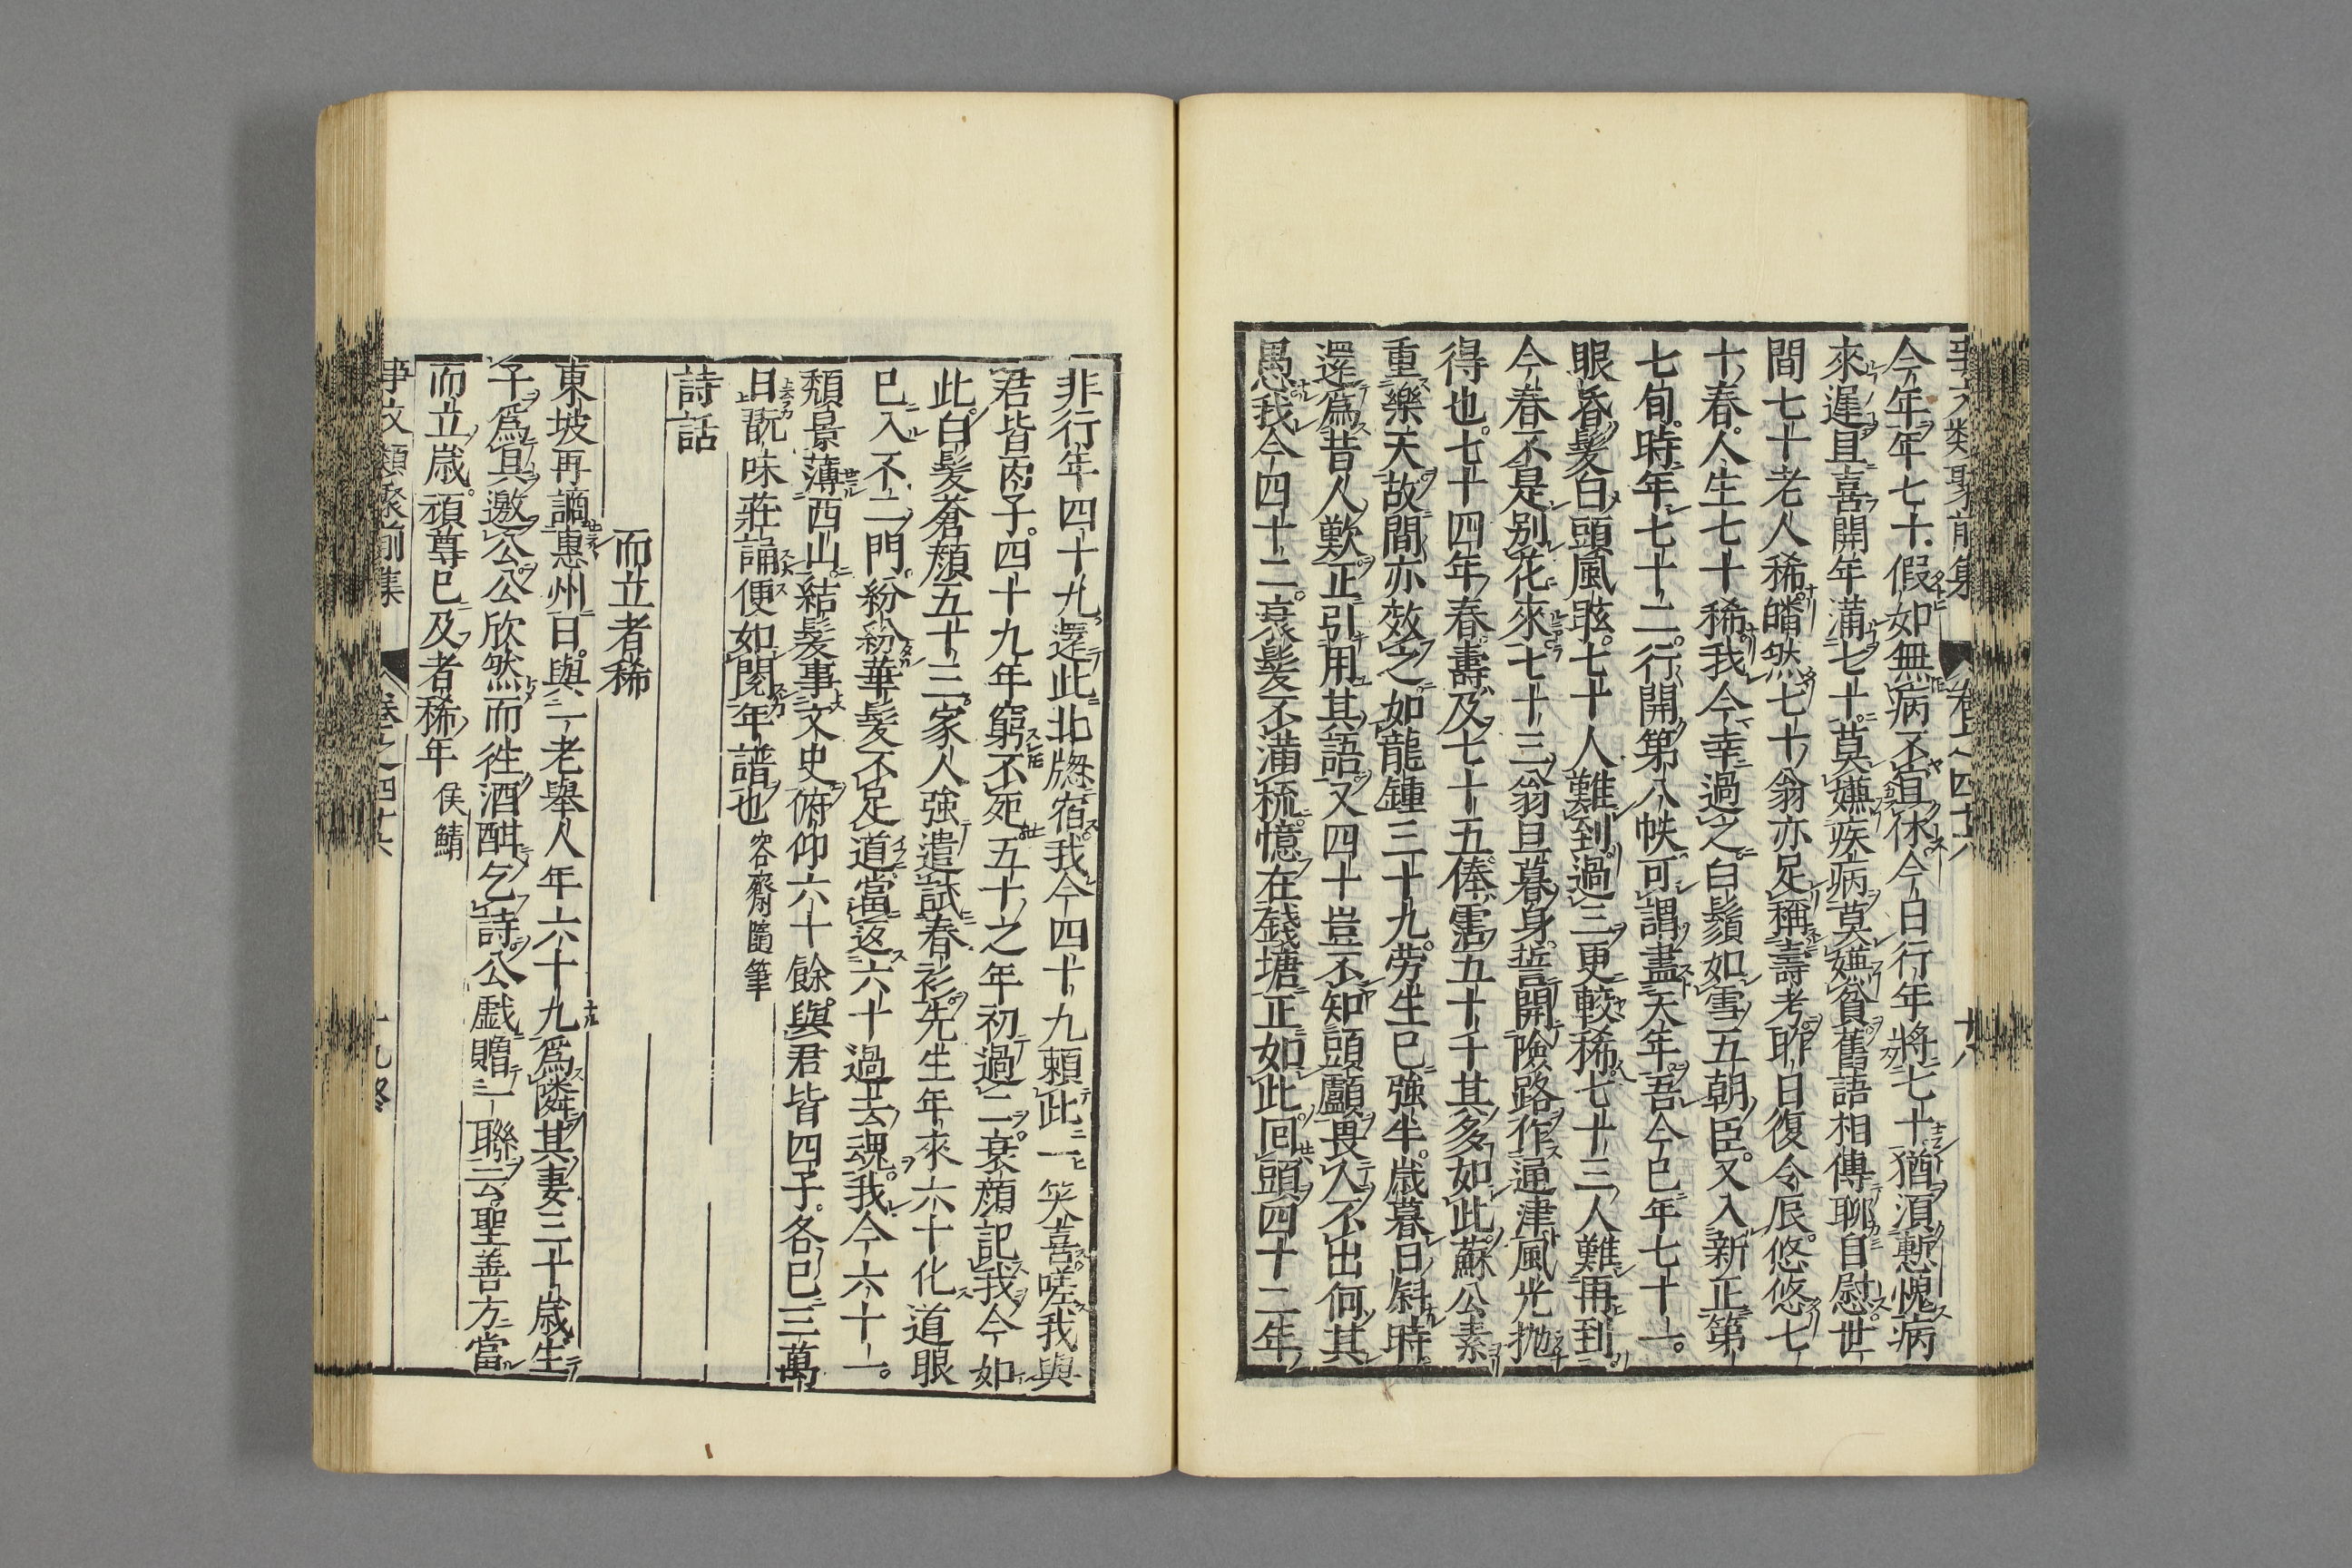 事文類聚前集 卷之四十六 十八
今年年七十假如無病不宜休今日行年將七十猶須慙愧病
來遲且喜開年滿七十莫嫌疾病莫嫌貧舊語相傳聊自慰世
間七十老人稀皤然七十翁亦足稱壽考昨日復今辰悠悠七
十春人生七十稀我今幸過之白鬚如雪五朝臣又入新正第
七旬時年七十二行開第八帙可謂盡天年吾今已年七十一
眼昏髮白頭風眩七十人難到過三更較稀七十三人難再到
今春不是别花來七十三翁旦暮身誓開險路作通津風光抛
得也七十四年春壽及七十五俸霑五十千其多如此蘇公素
重樂天故間亦效之如龍鍾三十九勞生已強半歲暮日斜時
還爲昔人歎正引用其語又四十豈不知頭顱畏人不出何其
愚我今四十二衰髮不滿梳憶在錢塘正如此回頭四十二年
非行年四十九還此北牕宿我今四十九賴此一笑喜嗟我與
君皆丙子四十九年窮不死五十之年初過二衰顔記我今如
此白髮蒼顔五十三家人強遣試春衫先生年來六十化道眼
已入不二門紛紛華髮不足道當返六十過去魂我今六十一
頽景薄西山結髮事文史俯仰六十餘與君皆四子各已三萬
日翫味莊誦便如閱年譜也 容齋隨筆
詩話
而立者稀
東坡再謫惠州日與一老舉人年六十九爲隣其妻三十歲生
子爲具邀公公欣然而徃酒酣乞詩公戯贈一聯云聖善方當
而立歲頑尊已及者稀年 侯鯖
事文類聚前集 卷之四十六 十九終